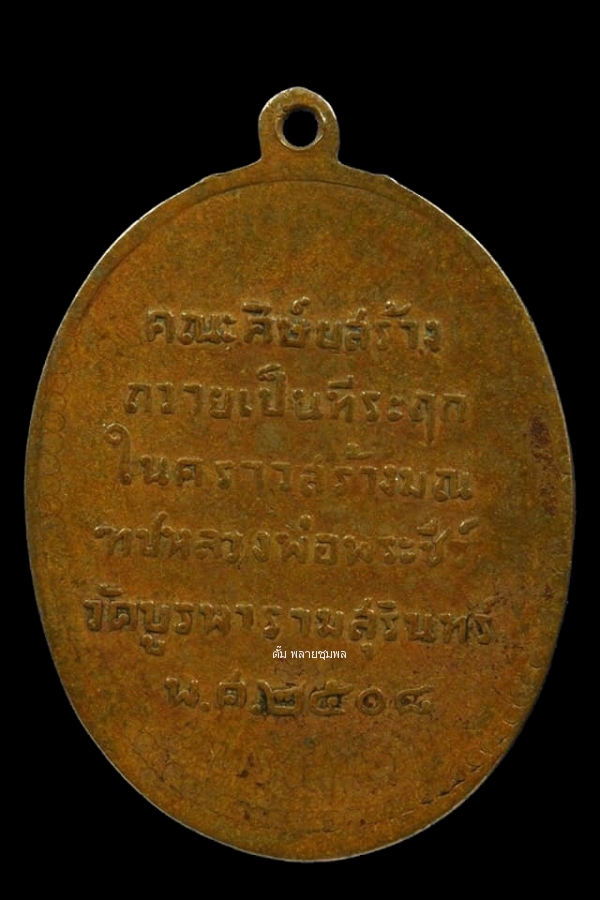 คณะศิษย์สร้าง
ถวายเป็นที่ระฤก
ในคราวสร้างมณ
ฑปหลวงพ่อพระชีว์
วัดบูรพารามสุรินทร์
ตั๊ม พลายชุมพล
พ.ศ.๒๕๑๔